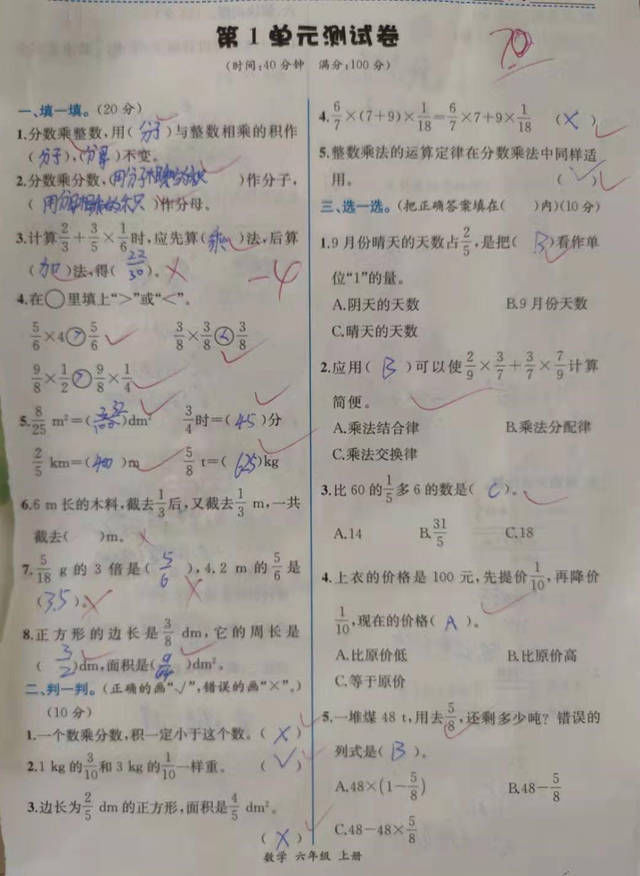 第1单元测试卷
(时间:40分钟 满分:100分)
70
一、填一填。(20分)
1.分数乘整数,用(分子)与整数相乘的积作
(分子),(分母)不变。
2.分数乘分数,(用分子相乘的积)作分子,
(用分母相乘的积)作分母。
3.计算2/3+3/5×1/6时,应先算(乘)法,后算
(加)法,得(22/30)。
-4
4.在○里填上“>”或“<”。
5/6×4>5/6 3/8×3/8<3/8
9/8×1/2>9/8×1/4
5.8/25 m²=()dm² 3/4时=(45)分
2/5 km=(400)m 5/8 t=(625)kg
6.6 m长的木料,截去1/3后,又截去1/3 m,一共
截去( )m。
7.5/18 g的3倍是(5/6),4.2 m的5/6是
(3.5)。
8.正方形的边长是3/8 dm,它的周长是
(3/2)dm,面积是(9/64)dm²。
二、判一判。(正确的画“√”,错误的画“×”。)
(10分)
1.一个数乘分数,积一定小于这个数。(×)
2.1 kg的3/10和3 kg的1/10一样重。(√)
3.边长为2/5 dm的正方形,面积是4/5 dm²。
(×)
4.6/7×(7+9)×1/18=6/7×7+9×1/18 (×)
5.整数乘法的运算定律在分数乘法中同样适
用。(√)
三、选一选。(把正确答案填在( )内)(10分)
1.9月份晴天的天数占2/5,是把(B)看作单
位“1”的量。
A.阴天的天数 B.9月份天数
C.晴天的天数
2.应用(B)可以使2/9×3/7+3/7×7/9计算
简便。
A.乘法结合律 B.乘法分配律
C.乘法交换律
3.比60的1/5多6的数是(C)。
A.14 B.31/5 C.18
4.上衣的价格是100元,先提价1/10,再降价
1/10,现在的价格(A)。
A.比原价低 B.比原价高
C.等于原价
5.一堆煤48 t,用去5/8,还剩多少吨?错误的
列式是(B)。
A.48×(1-5/8) B.48-5/8
C.48-48×5/8
数学 六年级 上册